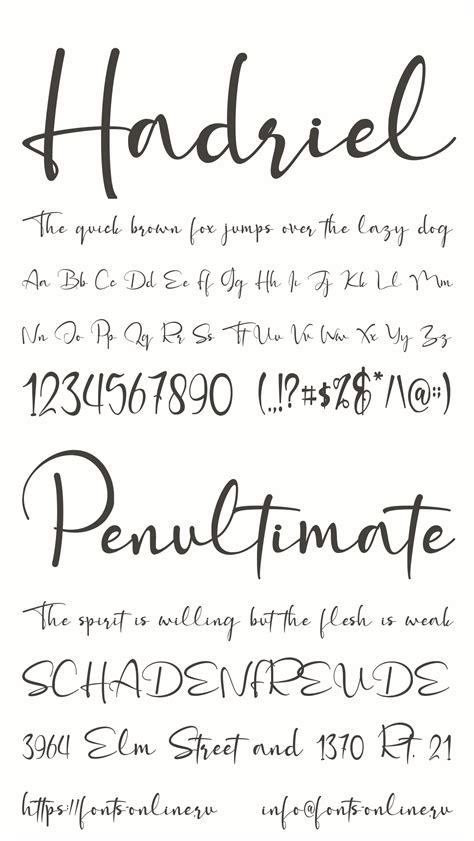 Hadriel
The quick brown fox jumps over the lazy dog
Aa Bb Cc Dd Ee Ff Gg Hh Ii Jj Kk Ll Mm
Nn Oo Pp Qq Rr Ss Tt Uu Vv Ww Xx Yy Zz
1234567890 (.,!?#$%&*/\@:;)
Penultimate
The spirit is willing but the flesh is weak
SCHADENFREUDE
3964 Elm Street and 1370 Rt. 21
https://fonts-online.ru info@fonts-online.ru